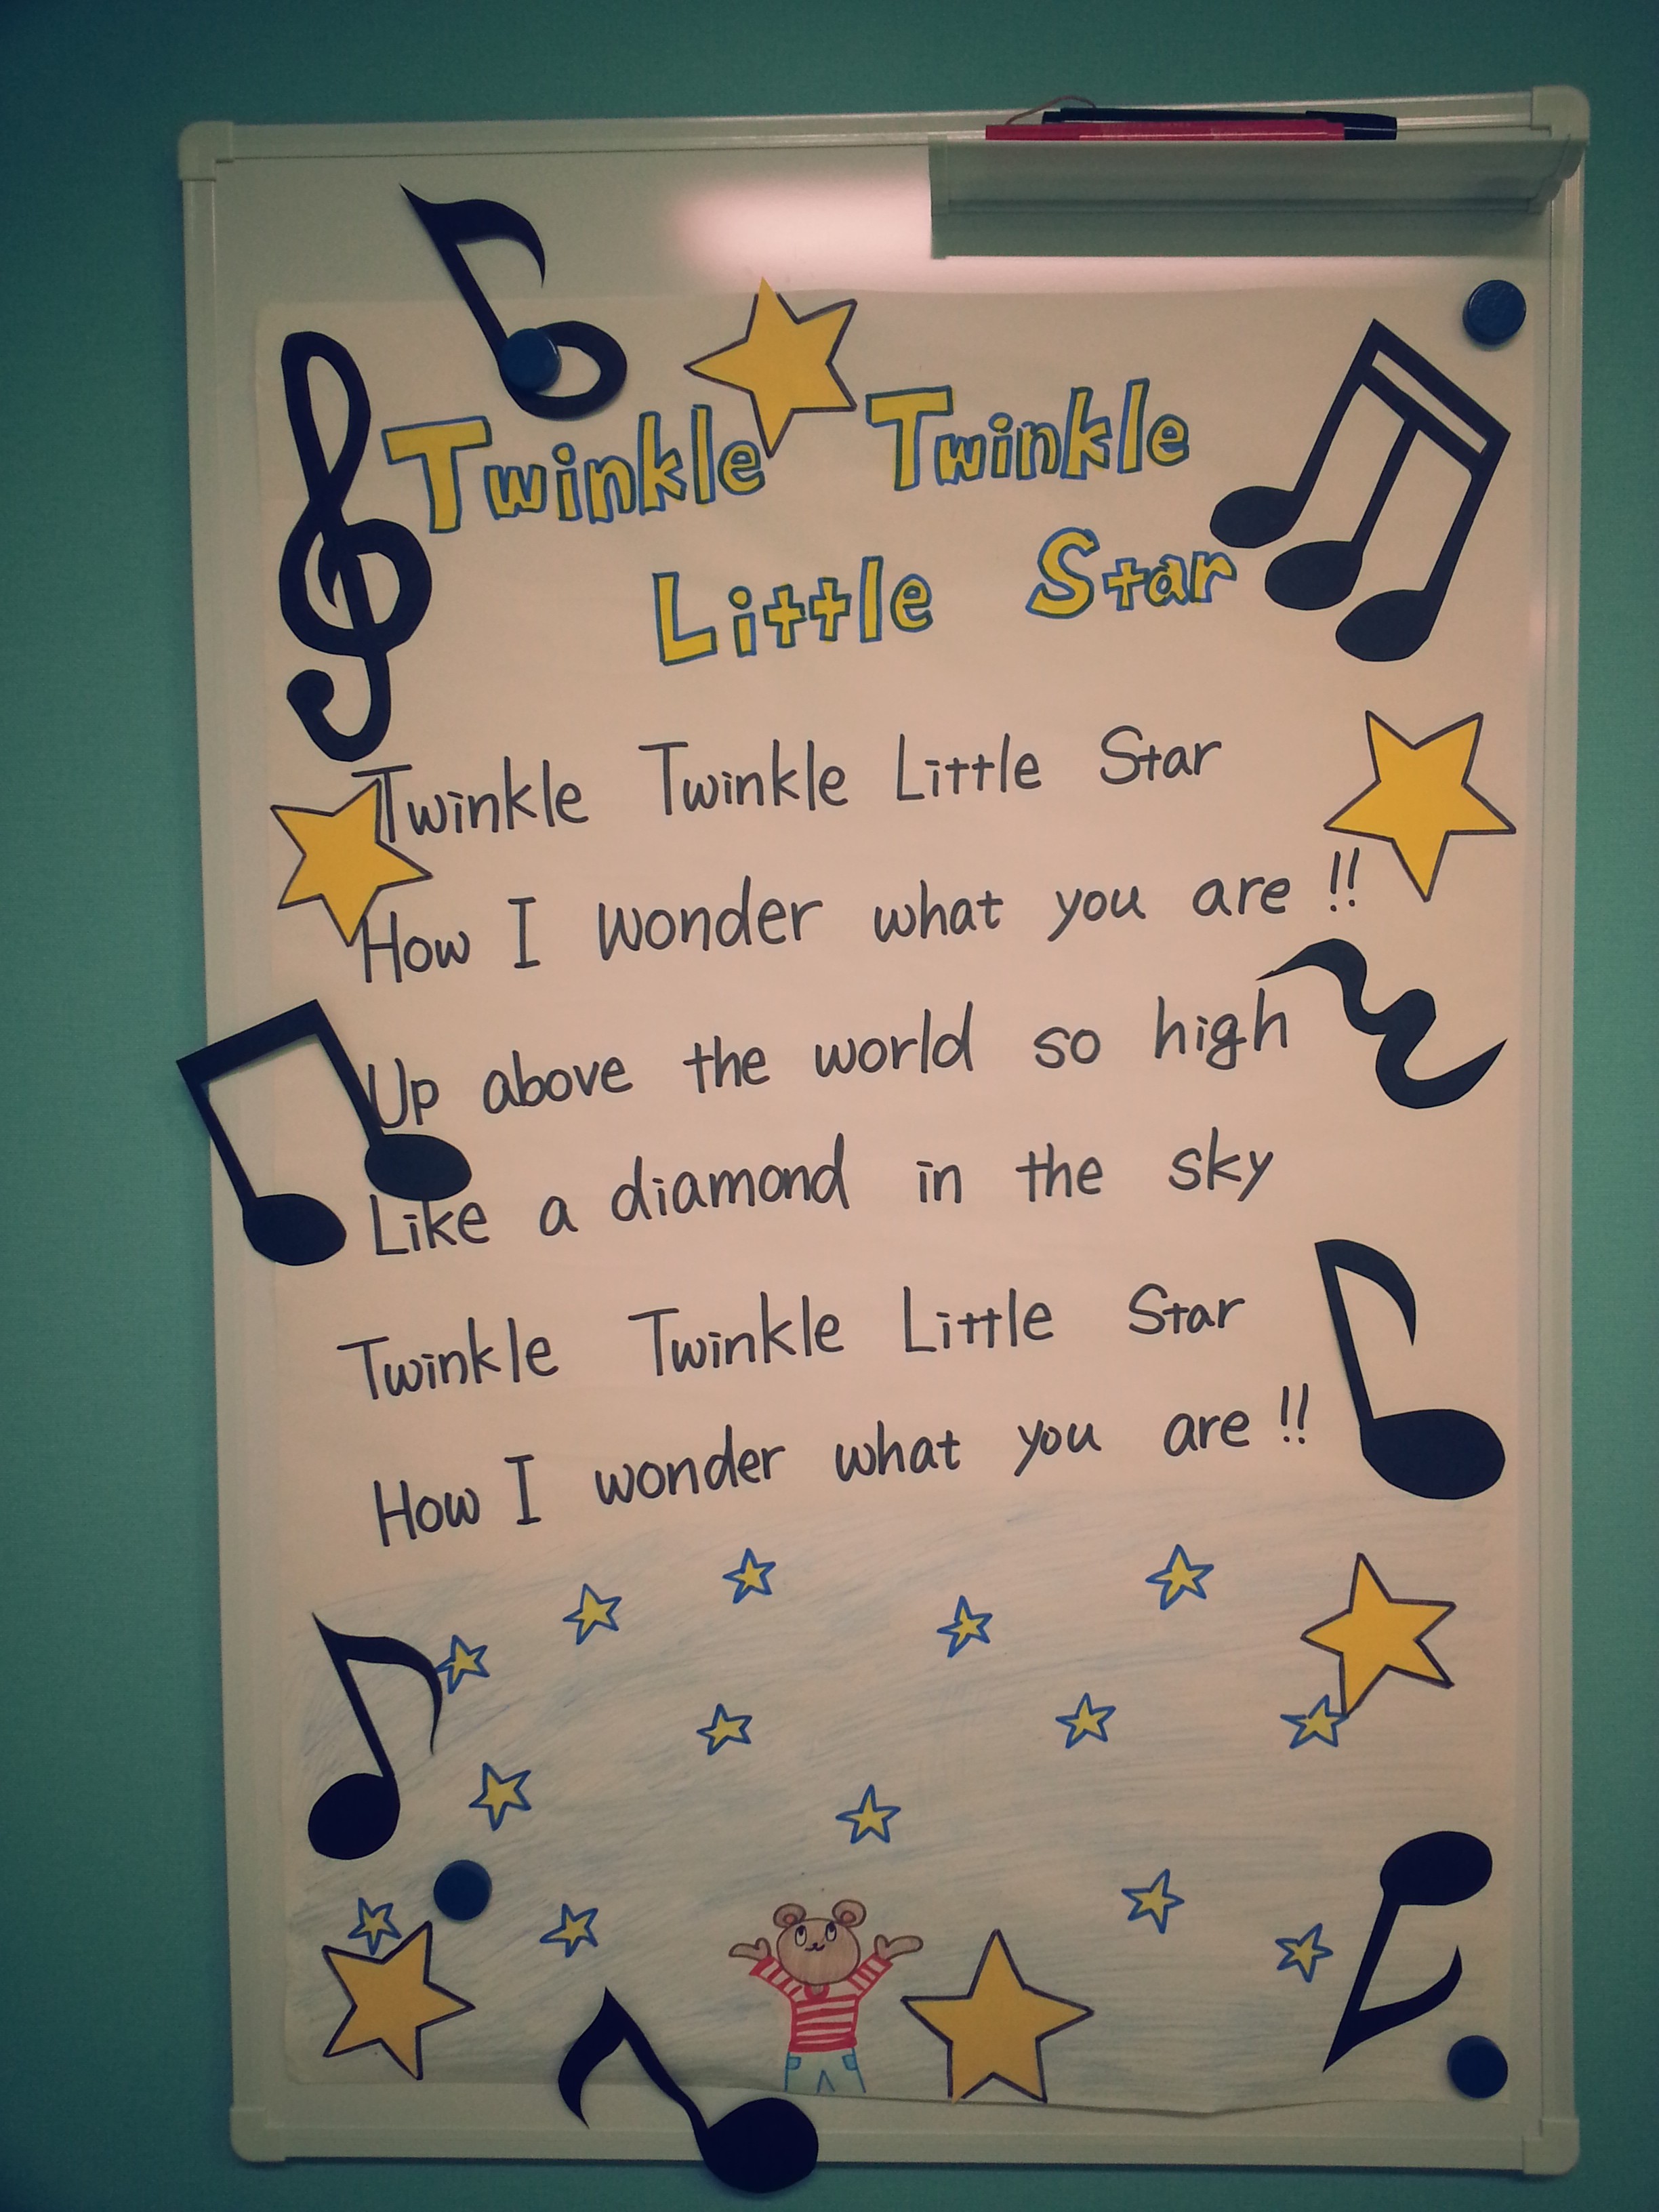 Twinkle Twinkle
Little Star
Twinkle Twinkle Little Star
How I wonder what you are !!
Up above the world so high
Like a diamond in the sky
Twinkle Twinkle Little Star
How I wonder what you are !!